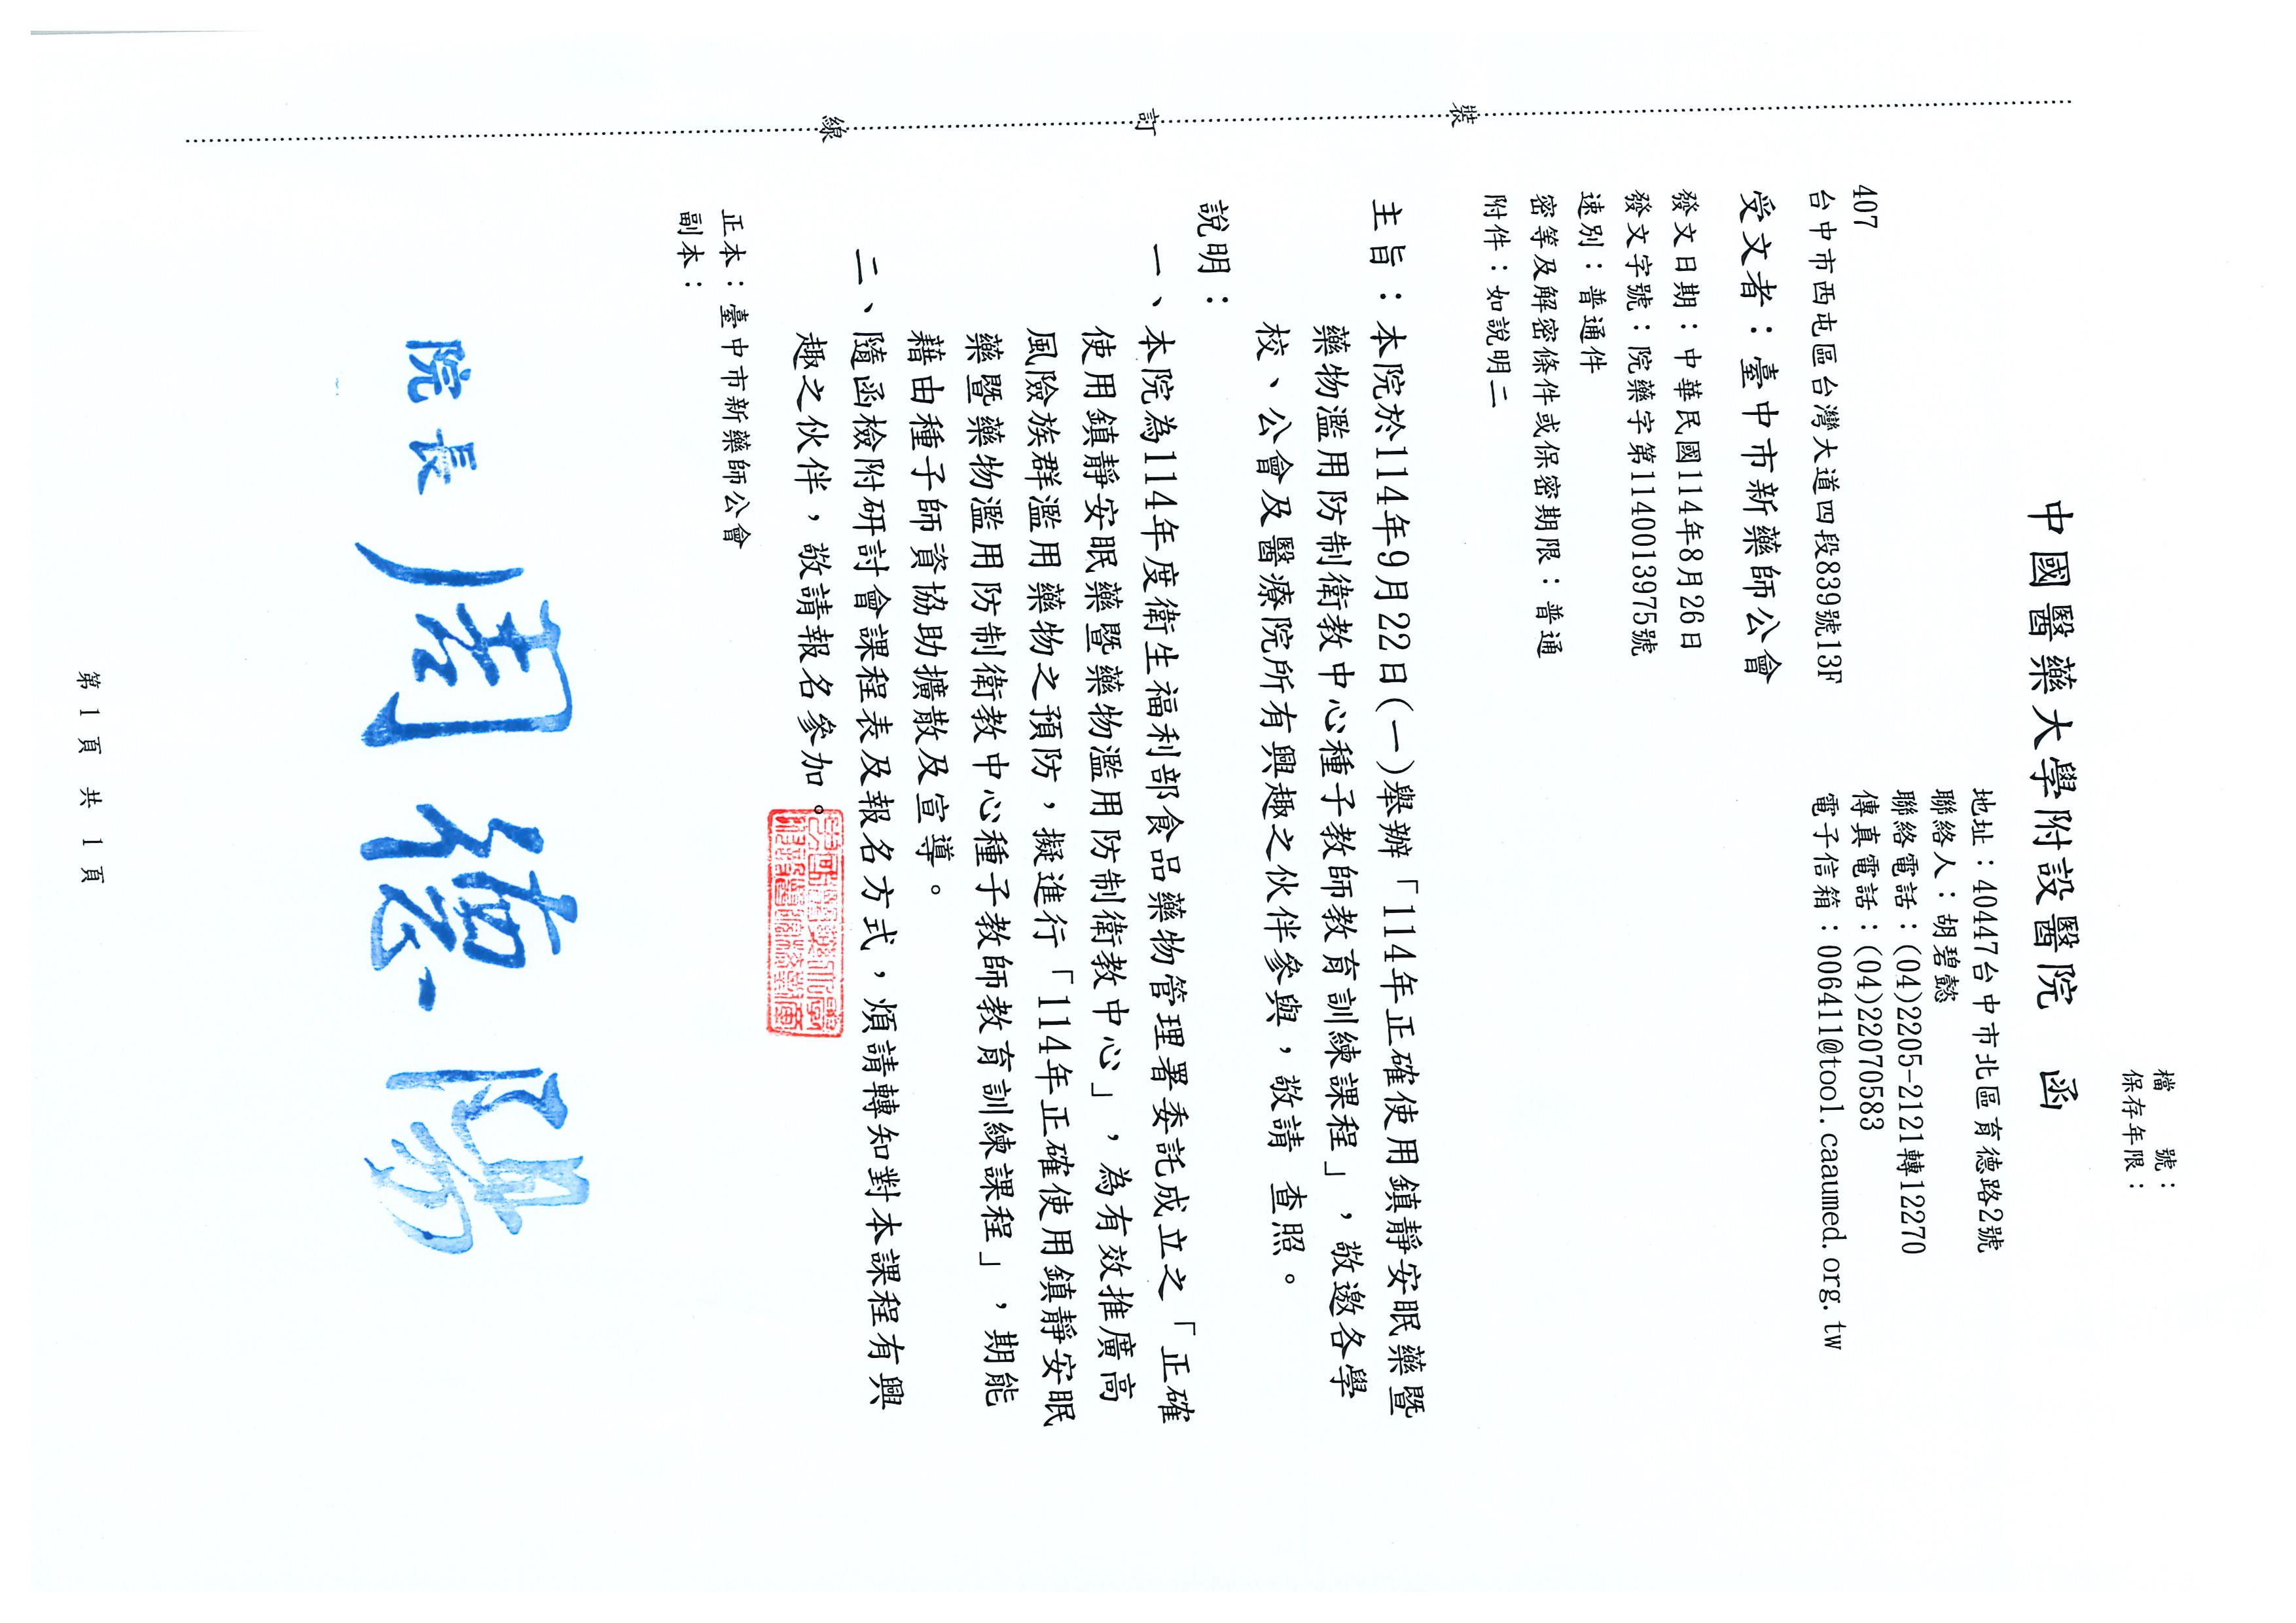 檔　　號：
保存年限：
中國醫藥大學附設醫院　函
地址：40447台中市北區育德路2號
聯絡人：胡碧懿
聯絡電話：(04)2205-2121轉12270
傳真電話：(04)22070583
電子信箱：006411@tool.caaumed.org.tw
407
台中市西屯區台灣大道四段839號13F
受文者：臺中市新藥師公會
發文日期：中華民國114年8月26日
發文字號：院藥字第1140013975號
速別：普通件
密等及解密條件或保密期限：普通
附件：如說明二
主旨：本院於114年9月22日(一)舉辦「114年正確使用鎮靜安眠藥暨
藥物濫用防制衛教中心種子教師教育訓練課程」，敬邀各學
校、公會及醫療院所有興趣之伙伴參與，敬請 查照。
說明：
一、本院為114年度衛生福利部食品藥物管理署委託成立之「正確
使用鎮靜安眠藥暨藥物濫用防制衛教中心」，為有效推廣高
風險族群濫用藥物之預防，擬進行「114年正確使用鎮靜安眠
藥暨藥物濫用防制衛教中心種子教師教育訓練課程」，期能
藉由種子師資協助擴散及宣導。
二、隨函檢附研討會課程表及報名方式，煩請轉知對本課程有興
趣之伙伴，敬請報名參加。
正本：臺中市新藥師公會
副本：
院長 周德陽
裝
訂
線
第 1 頁 共 1 頁